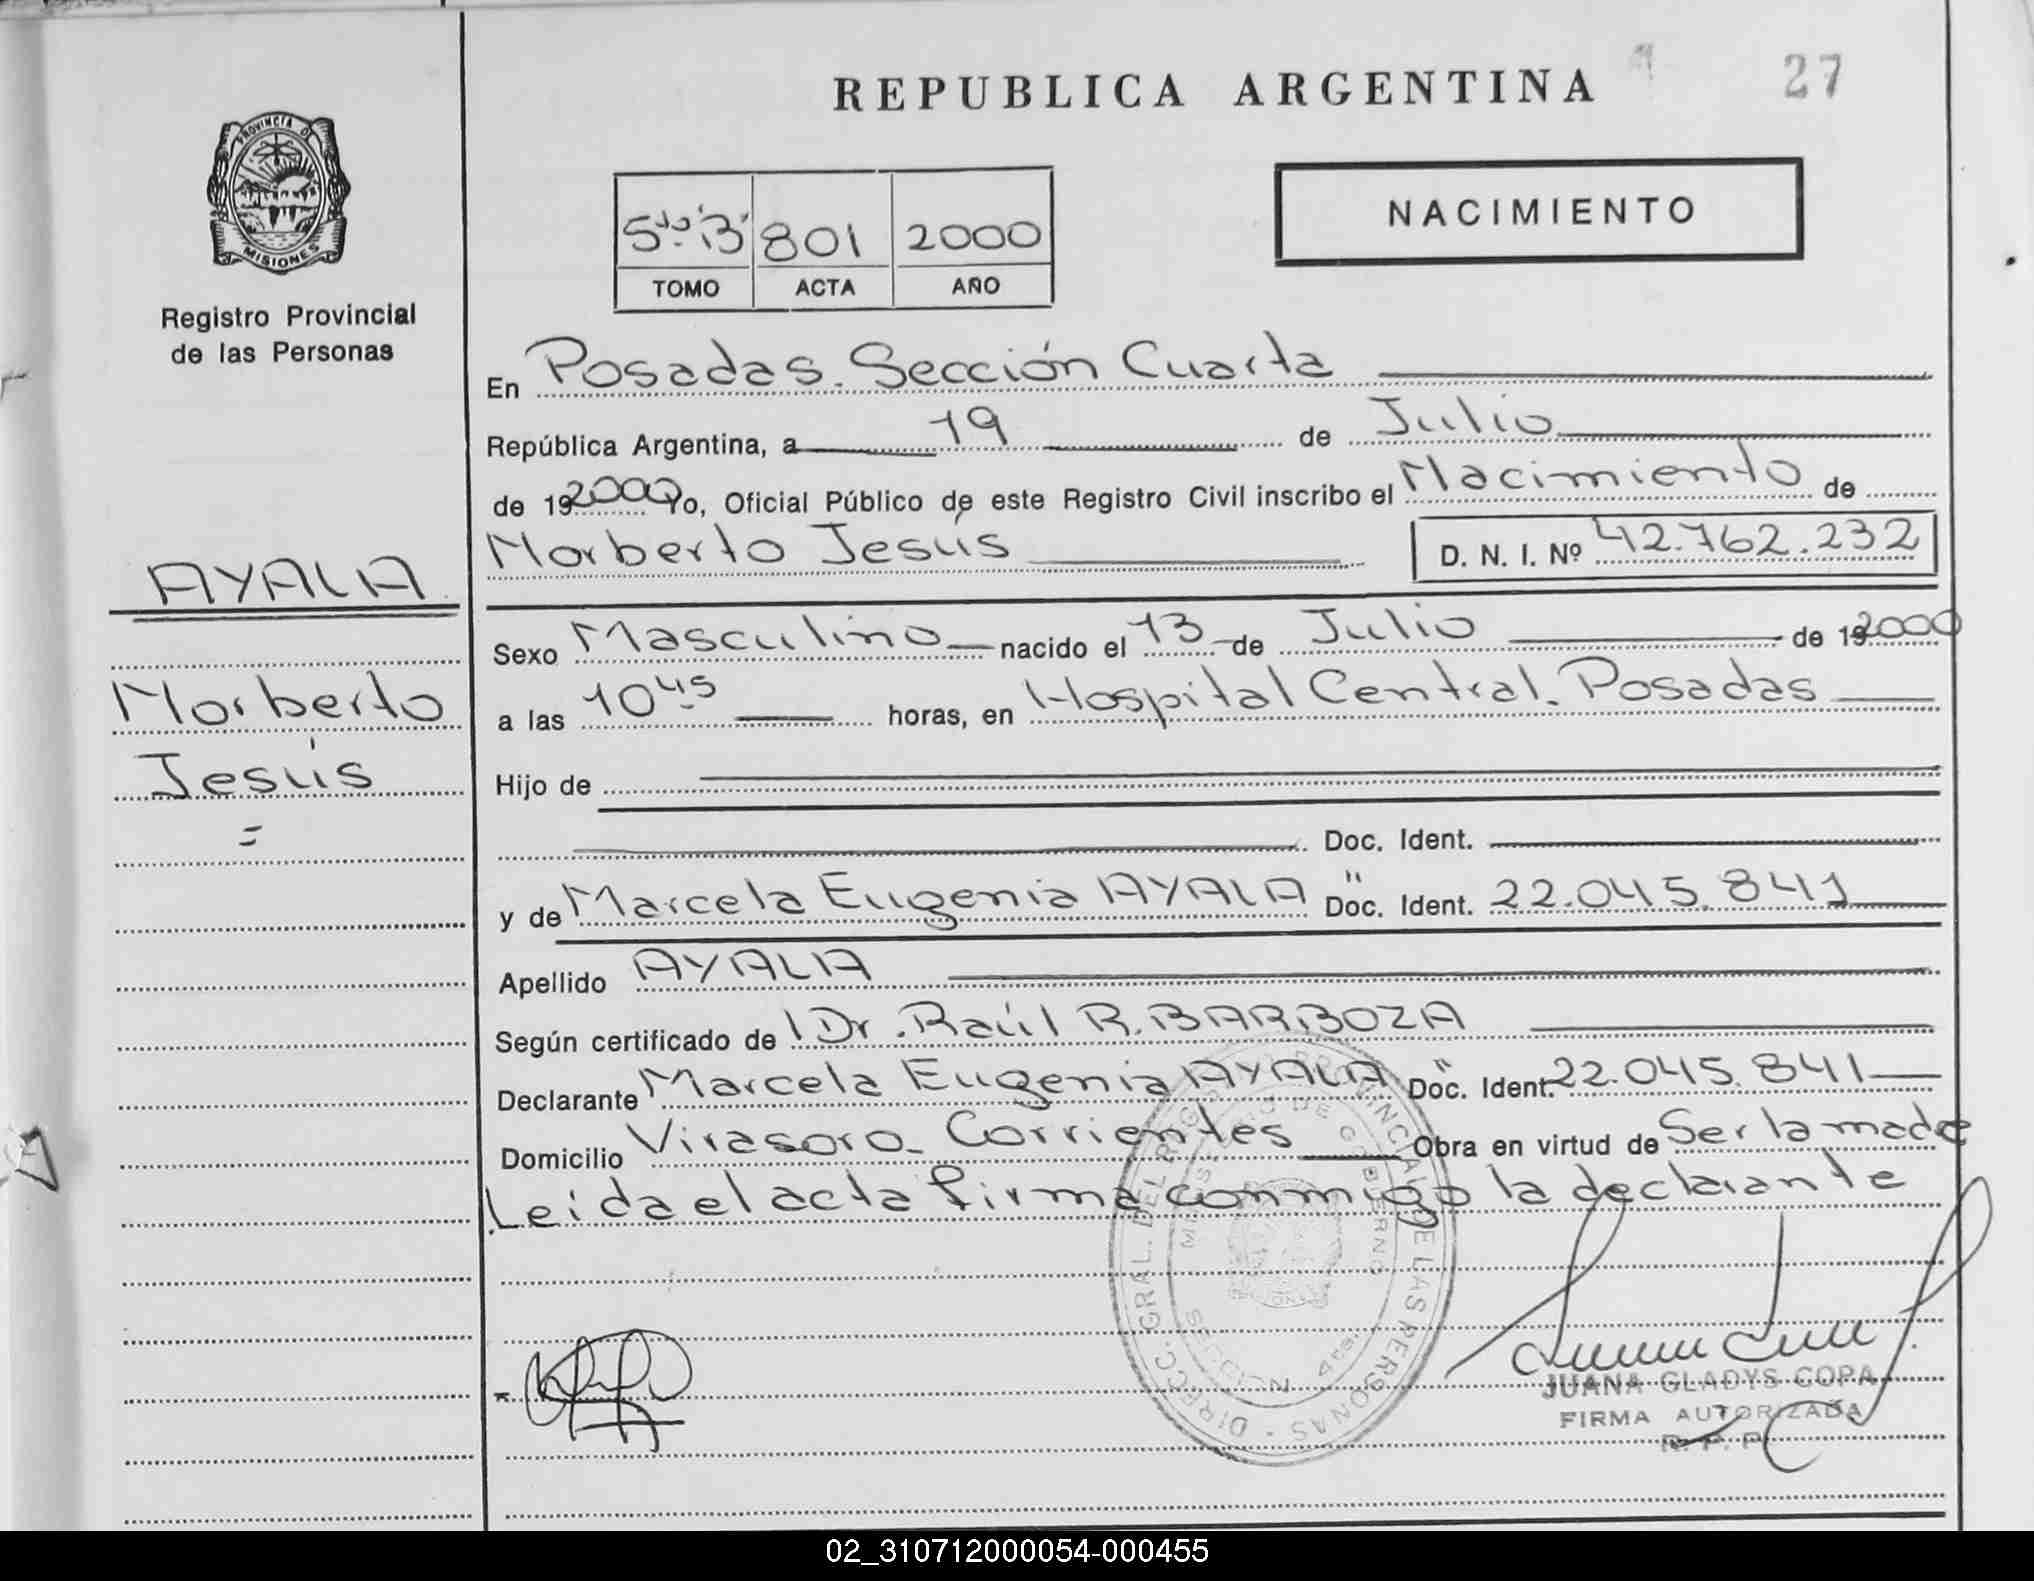 27
REPUBLICA ARGENTINA
PROVINCIA DE
MISIONES
Registro Provincial
de las Personas
5to "B" 801 2000
TOMO ACTA AÑO
NACIMIENTO
En Posadas. Sección Cuarta
República Argentina, a 19 de Julio
de 19 2000 Yo, Oficial Público de este Registro Civil inscribo el Nacimiento de
Norberto Jesús D. N. I. Nº 42.762.232
AYALA
Norberto
Jesús
=
Sexo Masculino nacido el 13 de Julio de 19 2000
a las 10 45 horas, en Hospital Central. Posadas
Hijo de
Doc. Ident.
y de Marcela Eugenia AYALA Doc. Ident. 22.045.841
Apellido AYALA
Según certificado de Dr. Raúl R. BARBOZA
Declarante Marcela Eugenia AYALA Doc. Ident. 22.045.841
Domicilio Virasoro - Corrientes Obra en virtud de Ser la madre
Leida el acta firma conmigo la declarante
DIRECC. GRAL. DEL REG. PROVINCIAL DE LAS PERSONAS
MINISTERIO DE GOBIERNO
SECCION 4ta.
JUANA GLADYS COPA
FIRMA AUTORIZADA
R. P. P.
02_310712000054-000455